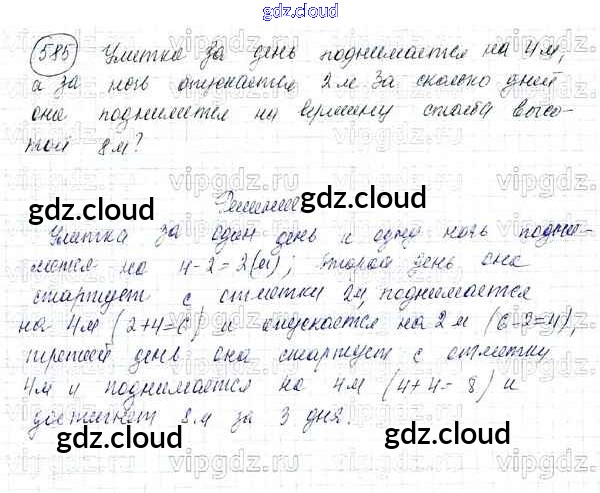 gdz.cloud
585 Улитка за день поднимается на 4м,
а за ночь опускается 2м. За сколько дней
она поднимется на вершину столба высо-
той 8м?
Решение
gdz.cloud gdz.cloud
Улитка за один день и одну ночь подни-
мется на 4-2=2(м); второй день она
стартует с отметки 2м, поднимается
на 4м (2+4=6) и опускается на 2м (6-2=4),
третий день она стартует с отметки
4м и поднимается на 4м (4+4=8) и
достигнет 8м за 3 дня.
gdz.cloud gdz.cloud
vipgdz.ru